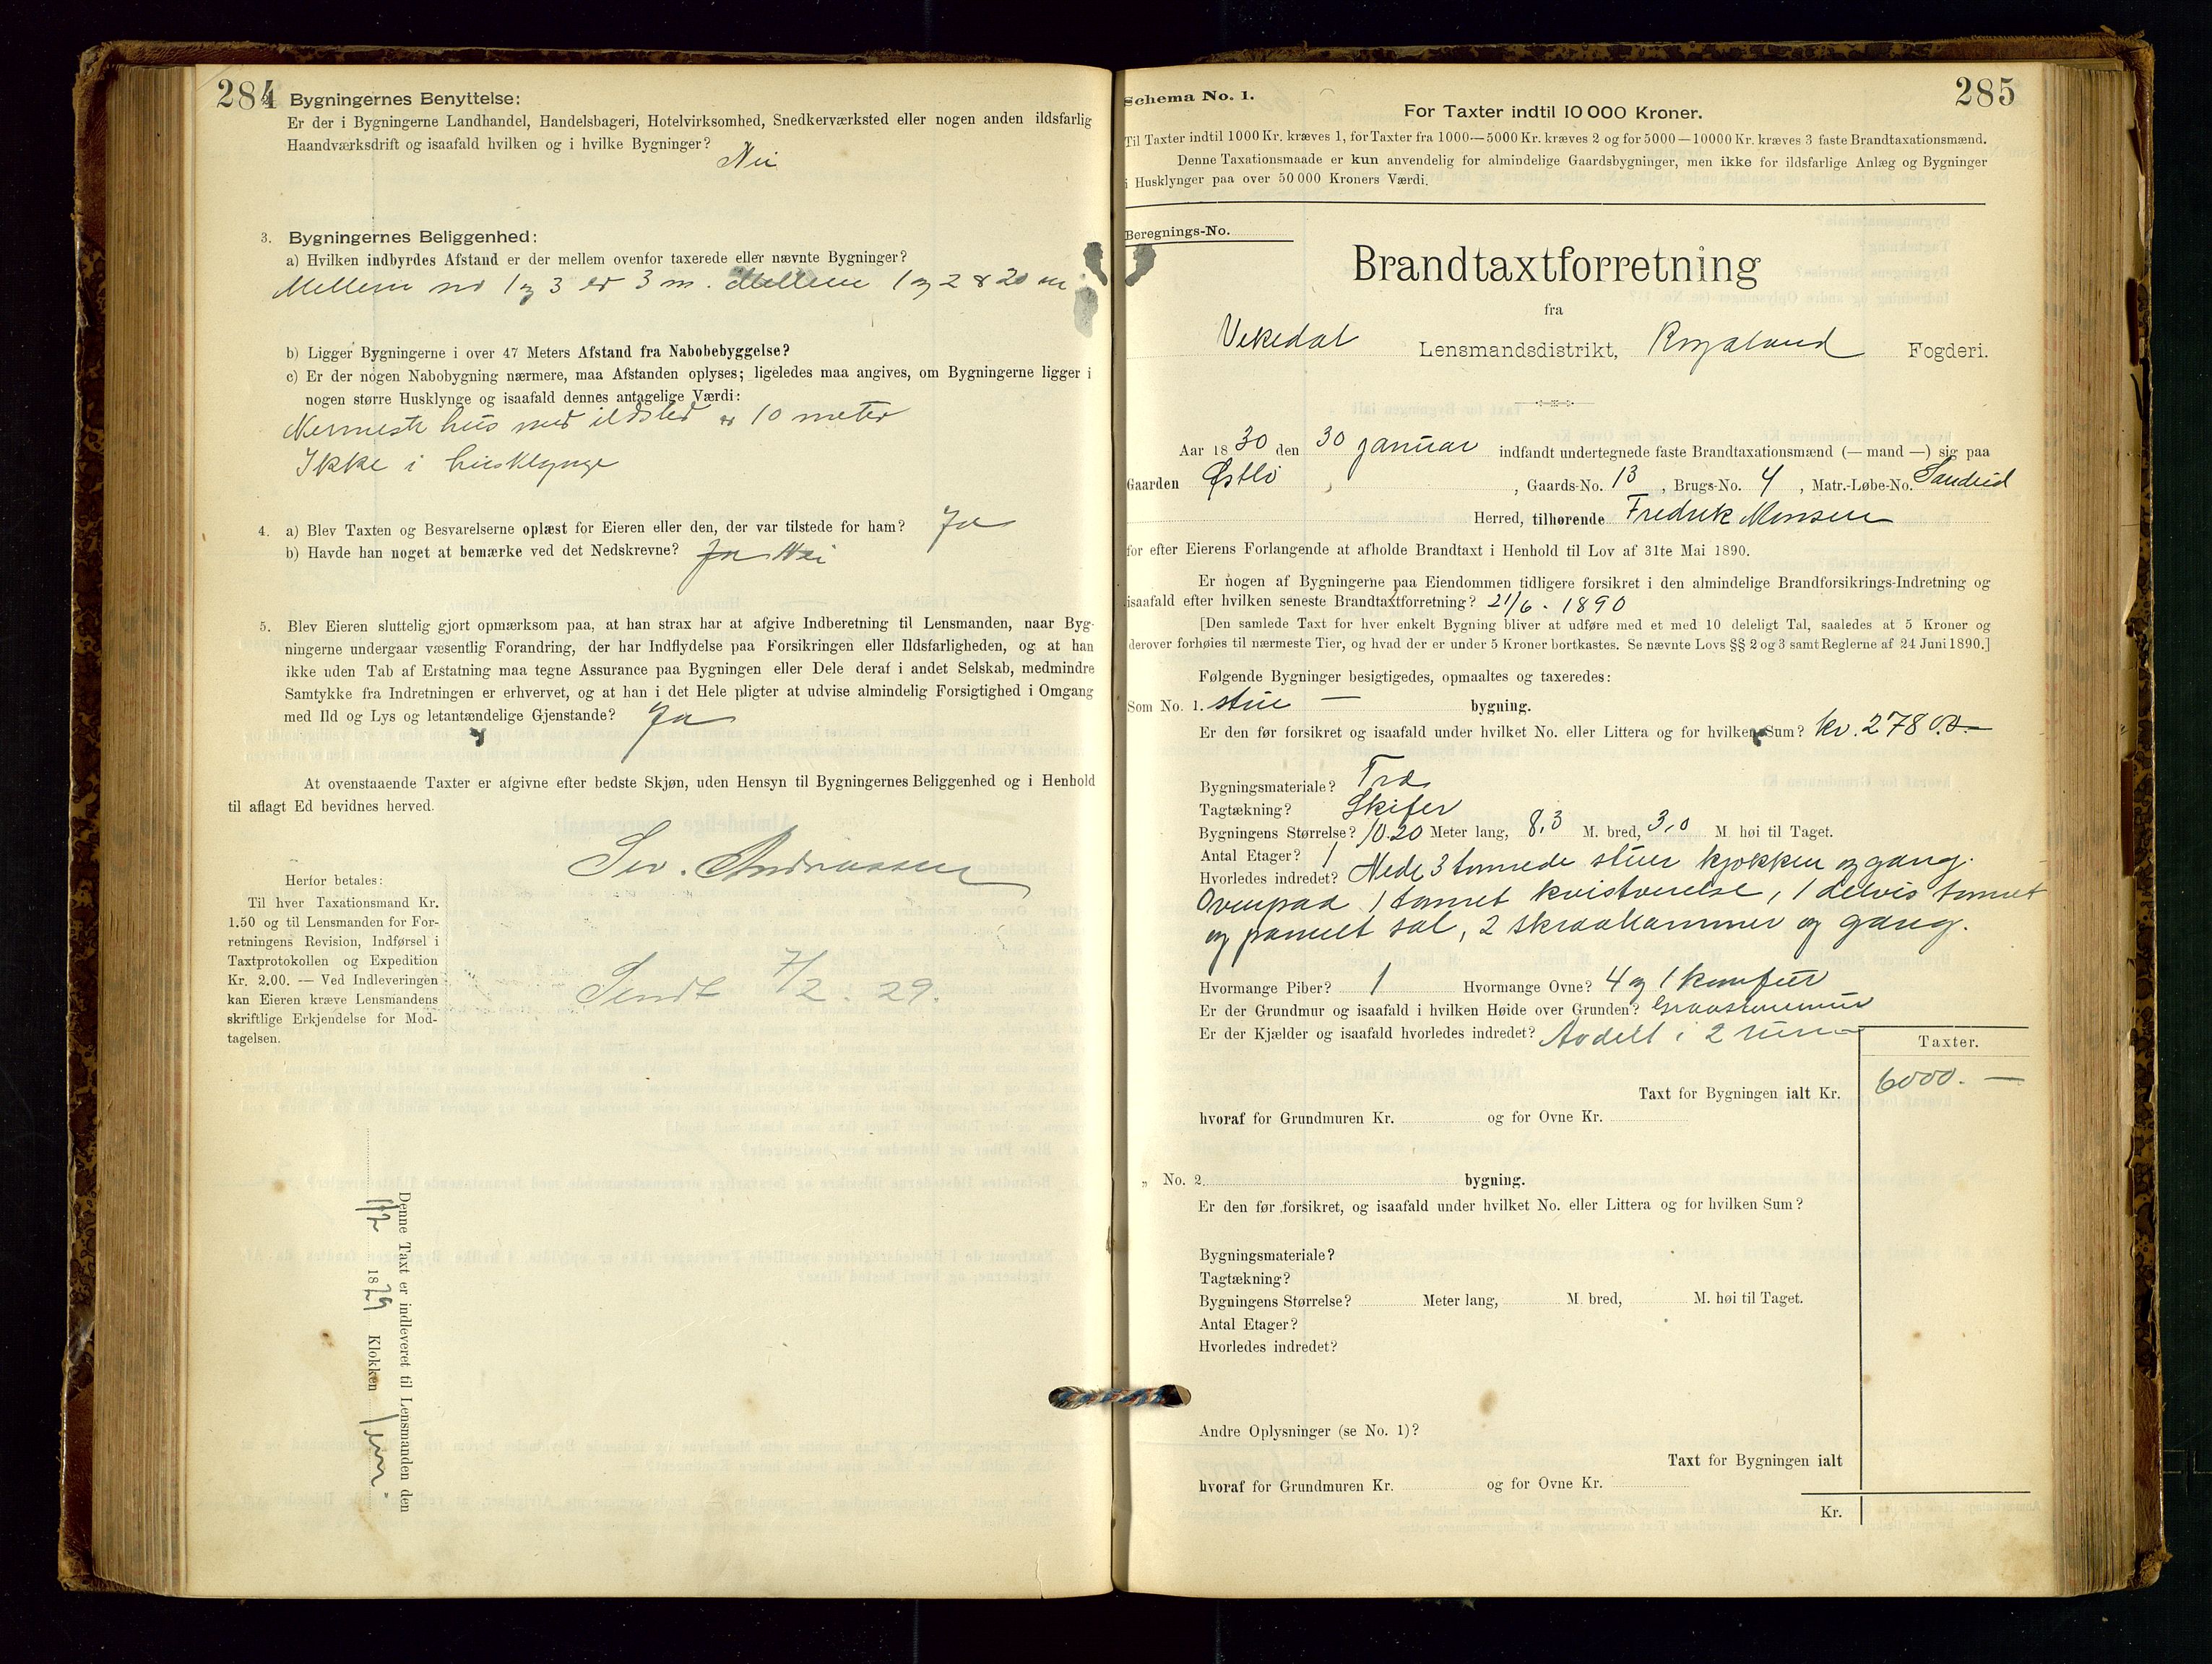 284
Bygningernes Benyttelse:
Er der i Bygningerne Landhandel, Handelsbageri, Hotelvirksomhed, Snedkerværksted eller nogen anden ildsfarlig
Haandværksdrift og isaafald hvilken og i hvilke Bygninger?
Nei
3. Bygningernes Beliggenhed:
a) Hvilken indbyrdes Afstand er der mellem ovenfor taxerede eller nævnte Bygninger?
Mellem no 1 og 3 er 3 m. Mellem 1 og 2 er 20 m
b) Ligger Bygningerne i over 47 Meters Afstand fra Nabobebyggelse?
c) Er der nogen Nabobygning nærmere, maa Afstanden oplyses; ligeledes maa angives, om Bygningerne ligger i
nogen større Husklynge og isaafald dennes antagelige Værdi:
Nermeste hus med ildsted er 10 meter
Ikke i husklynge
4. a) Blev Taxten og Besvarelserne oplæst for Eieren eller den, der var tilstede for ham? Ja
b) Havde han noget at bemærke ved det Nedskrevne? Ja Nei
5. Blev Eieren sluttelig gjort opmærksom paa, at han strax har at afgive Indberetning til Lensmanden, naar Byg-
ningerne undergaar væsentlig Forandring, der har Indflydelse paa Forsikringen eller Ildsfarligheden, og at han
ikke uden Tab af Erstatning maa tegne Assurance paa Bygningen eller Dele deraf i andet Selskab, medmindre
Samtykke fra Indretningen er erhvervet, og at han i det Hele pligter at udvise almindelig Forsigtighed i Omgang
med Ild og Lys og letantændelige Gjenstande? Ja
At ovenstaaende Taxter er afgivne efter bedste Skjøn, uden Hensyn til Bygningernes Beliggenhed og i Henhold
til aflagt Ed bevidnes herved.
Andreassen
Herfor betales:
Til hver Taxationsmand Kr.
1.50 og til Lensmanden for For-
retningens Revision, Indførsel i
Taxtprotokollen og Expedition
Kr. 2.00. — Ved Indleveringen
kan Eieren kræve Lensmandens
skriftlige Erkjendelse for Mod-
tagelsen.
Sendt 7/2. 29.
Denne Taxt er indleveret til Lensmanden den
1/2 1829 Klokken
285
Schema No. 1.
For Taxter indtil 10 000 Kroner.
Til Taxter indtil 1000 Kr. kræves 1, for Taxter fra 1000—5000 Kr. kræves 2 og for 5000—10000 Kr. kræves 3 faste Brandtaxationsmænd.
Denne Taxationsmaade er kun anvendelig for almindelige Gaardsbygninger, men ikke for ildsfarlige Anlæg og Bygninger
i Husklynger paa over 50 000 Kroners Værdi.
Beregnings-No.
Brandtaxtforretning
fra
Vikedal Lensmandsdistrikt, Rogaland Fogderi.
Aar 1830 den 30 januar indfandt undertegnede faste Brandtaxationsmænd (— mand —) sig paa
Gaarden Østbø, Gaards-No. 13, Brugs-No. 4, Matr.-Løbe-No. Sandeid
Herred, tilhørende Fredrik Monsen
for efter Eierens Forlangende at afholde Brandtaxt i Henhold til Lov af 31te Mai 1890.
Er nogen af Bygningerne paa Eiendommen tidligere forsikret i den almindelige Brandforsikrings-Indretning og
isaafald efter hvilken seneste Brandtaxtforretning? 21/6. 1890
[Den samlede Taxt for hver enkelt Bygning bliver at udføre med et med 10 deleligt Tal, saaledes at 5 Kroner og
derover forhøies til nærmeste Tier, og hvad der er under 5 Kroner bortkastes. Se nævnte Lovs §§ 2 og 3 samt Reglerne af 24 Juni 1890.]
Følgende Bygninger besigtigedes, opmaaltes og taxeredes:
Som No. 1. stue — bygning.
Er den før forsikret og isaafald under hvilket No. eller Littera og for hvilken Sum? kr. 2780.0.—
Bygningsmateriale? Træ
Tagtækning? Skifer
Bygningens Størrelse? 10.20 Meter lang, 8,3 M. bred, 3,0 M. høi til Taget.
Antal Etager? 1
Hvorledes indredet? Nede 3 tømrede stuer kjøkken og gang.
Ovenpaa 1 tømret kvistverelse, 1 delvis tømret
og panelt sal, 2 skraakammer og gang.
Hvormange Piber? 1 Hvormange Ovne? 4 og 1 komfur
Er der Grundmur og isaafald i hvilken Høide over Grunden? Graastensmur
Er der Kjælder og isaafald hvorledes indredet? Avdelt i 2 rum
Taxter.
Taxt for Bygningen ialt Kr. 6000.—
hvoraf for Grundmuren Kr. og for Ovne Kr.
„ No. 2 bygning.
Er den før forsikret, og isaafald under hvilket No. eller Littera og for hvilken Sum?
Bygningsmateriale?
Tagtækning?
Bygningens Størrelse? Meter lang, M. bred, M. høi til Taget.
Antal Etager?
Hvorledes indredet?
Andre Oplysninger (se No. 1)?
Taxt for Bygningen ialt
hvoraf for Grundmuren Kr. og for Ovne Kr.
Kr.